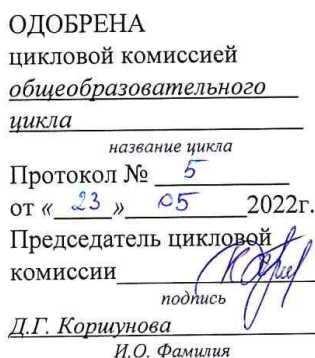 ОДОБРЕНА
цикловой комиссией
общеобразовательного
цикла
название цикла
Протокол № 5
от « 23 » 05 2022г.
Председатель цикловой
комиссии
подпись
Д.Г. Коршунова
И.О. Фамилия